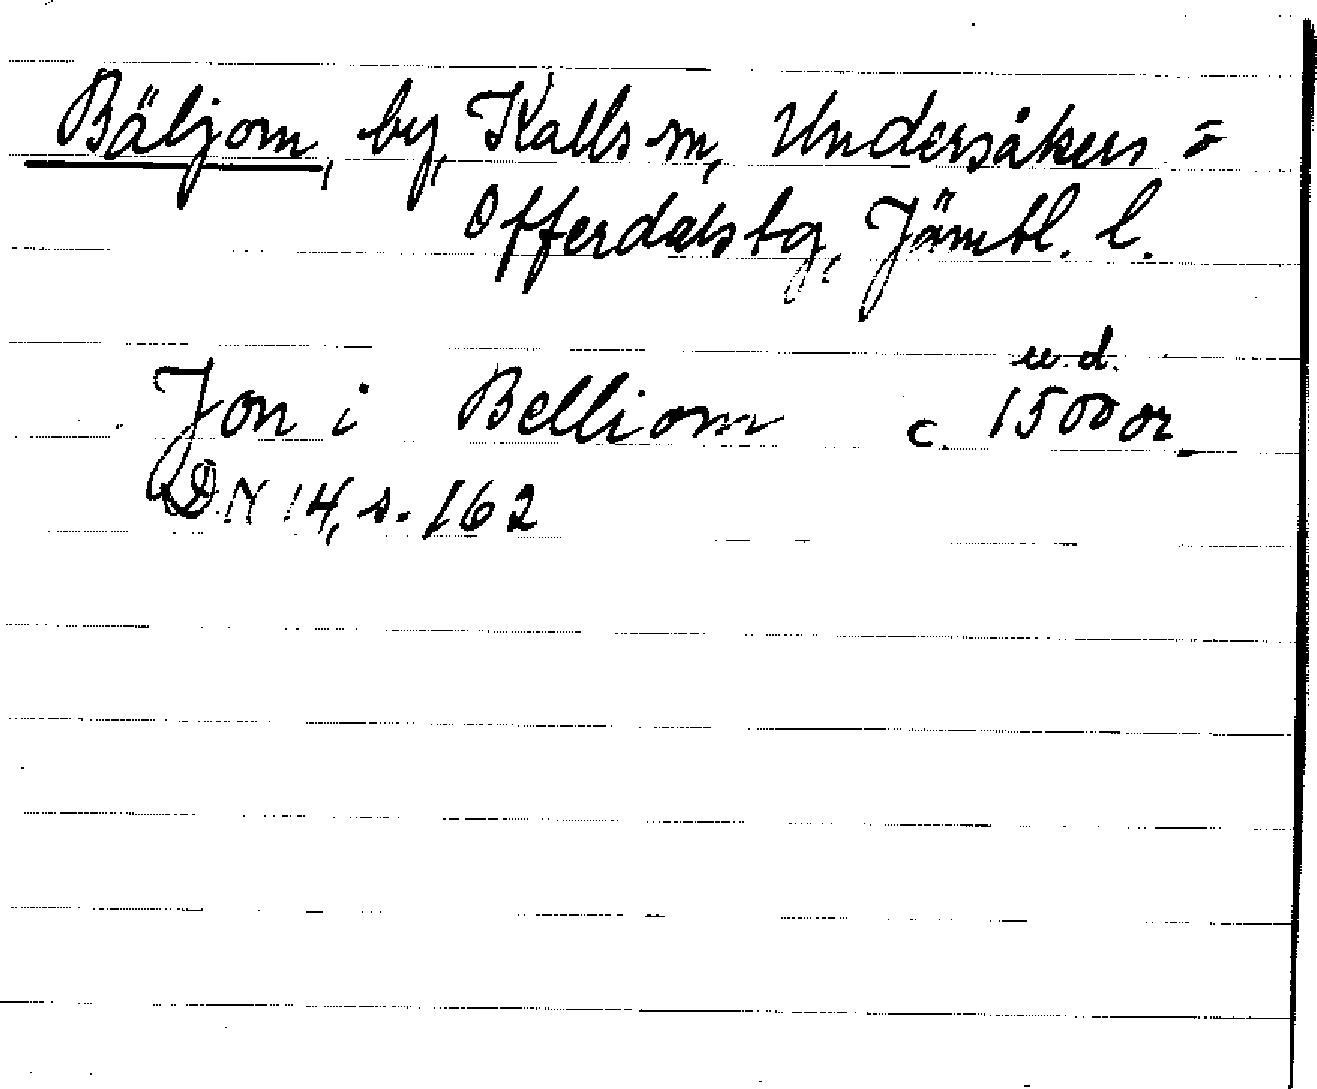 Bäljom, by, Kalls sn, Undersåkers =
Offerdals tg, Jämtl. l.
u.d.
Jon i Belliom c. 1500 or.
DN 14, s. 162